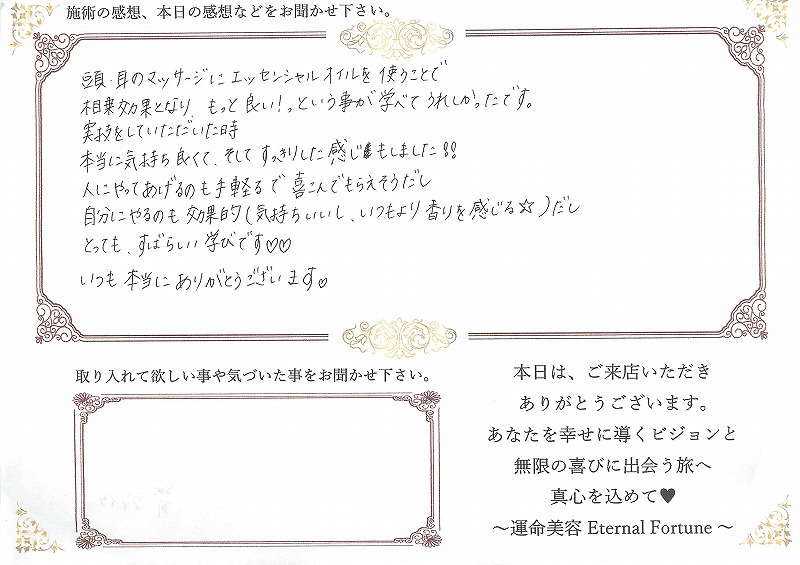 施術の感想、本日の感想などをお聞かせ下さい。
頭・耳のマッサージにエッセンシャルオイルを使うことで
相乗効果となり、もっと良い!っという事が学べてうれしかったです。
実技をしていただいた時
本当に気持ち良くて、そしてすっきりした感じもしました!!
人にやってあげるのも手軽るで喜こんでもらえそうだし
自分にやるのも効果的(気持ちいいし、いつもより香りを感じる☆)だし
とっても、すばらしい学びです♡♡
いつも本当にありがとうございます♡
取り入れて欲しい事や気づいた事をお聞かせ下さい。
本日は、ご来店いただき
ありがとうございます。
あなたを幸せに導くビジョンと
無限の喜びに出会う旅へ
真心を込めて♥
~運命美容 Eternal Fortune ~